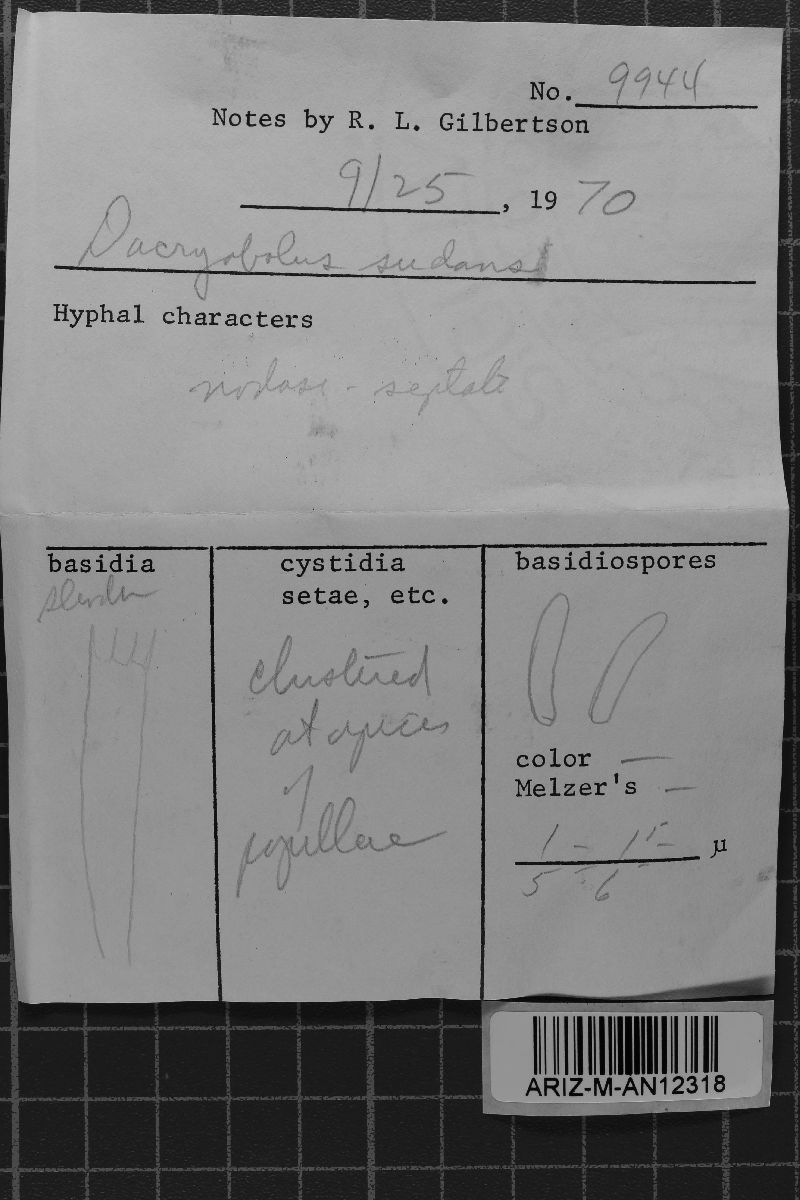 No. 9944
Notes by R. L. Gilbertson
9/25, 19 70
Dacryobolus sudans
Hyphal characters
nodose-septate
basidia
slender
cystidia
setae, etc.
clustered
at apices
of
papillae
basidiospores
color —
Melzer's —
1 - 1⁵ µ
5 - 6
ARIZ-M-AN12318